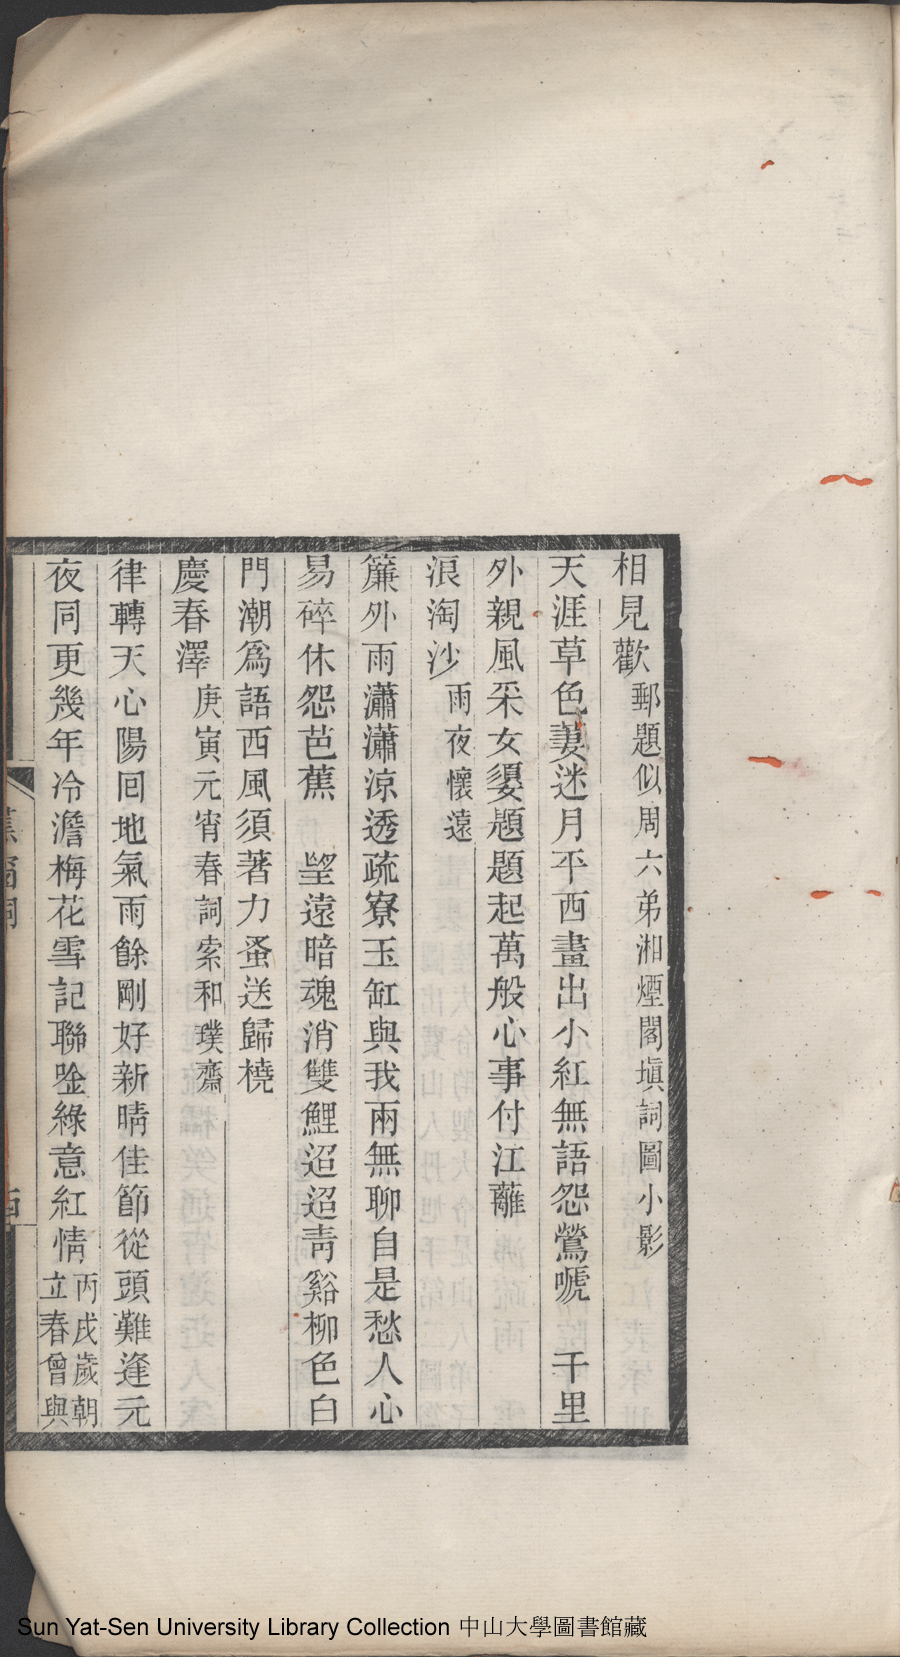 相見歡 郵題似周六弟湘煙閣塡詞圖小影
天涯草色萋迷月平西畫出小紅無語怨鶯嗁 千里
外親風采女嬃題題起萬般心事付江蘺
浪淘沙 雨夜懷遠
簾外雨瀟瀟涼透疏寮玉缸與我兩無聊自是愁人心
易碎休怨芭蕉 朢遠暗魂消雙鯉迢迢靑谿柳色白
門潮爲語西風須著力蚤送歸橈
慶春澤 庚寅元宵春詞索和璞齋
律轉天心陽回地氣雨餘剛好新晴佳節從頭難逢元
夜同更幾年冷澹梅花雪記聯唫綠意紅情 丙戌歲朝
立春曾與
蕉窗詞
Sun Yat-Sen University Library Collection 中山大學圖書館藏